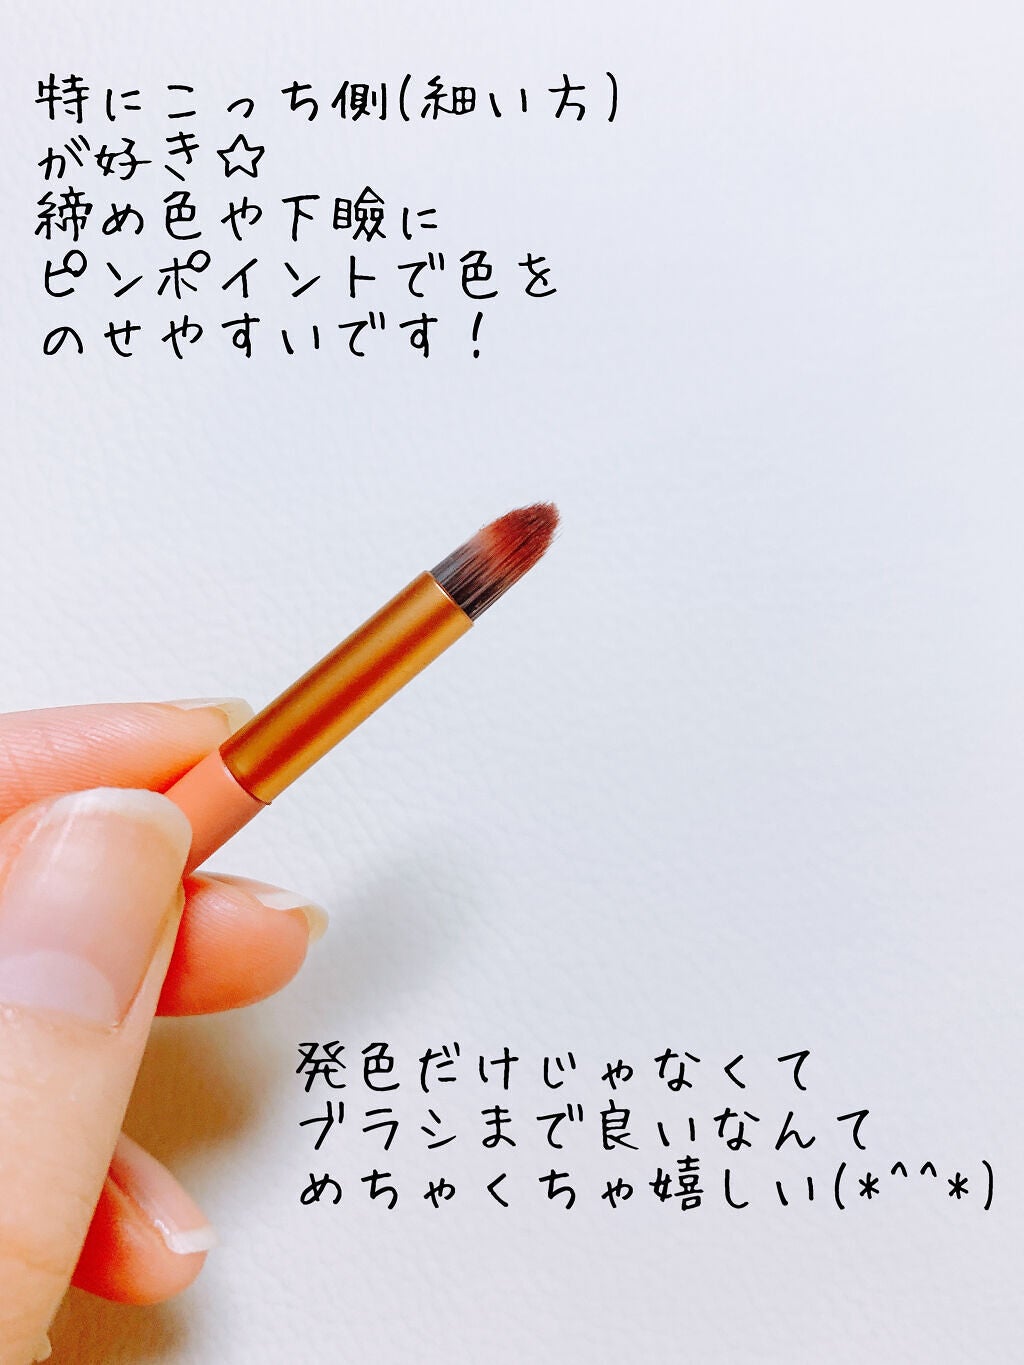 特にこっち側(細い方)
が好き☆
締め色や下瞼に
ピンポイントで色を
のせやすいです！
発色だけじゃなくて
ブラシまで良いなんて
めちゃくちゃ嬉しい(*^^*)